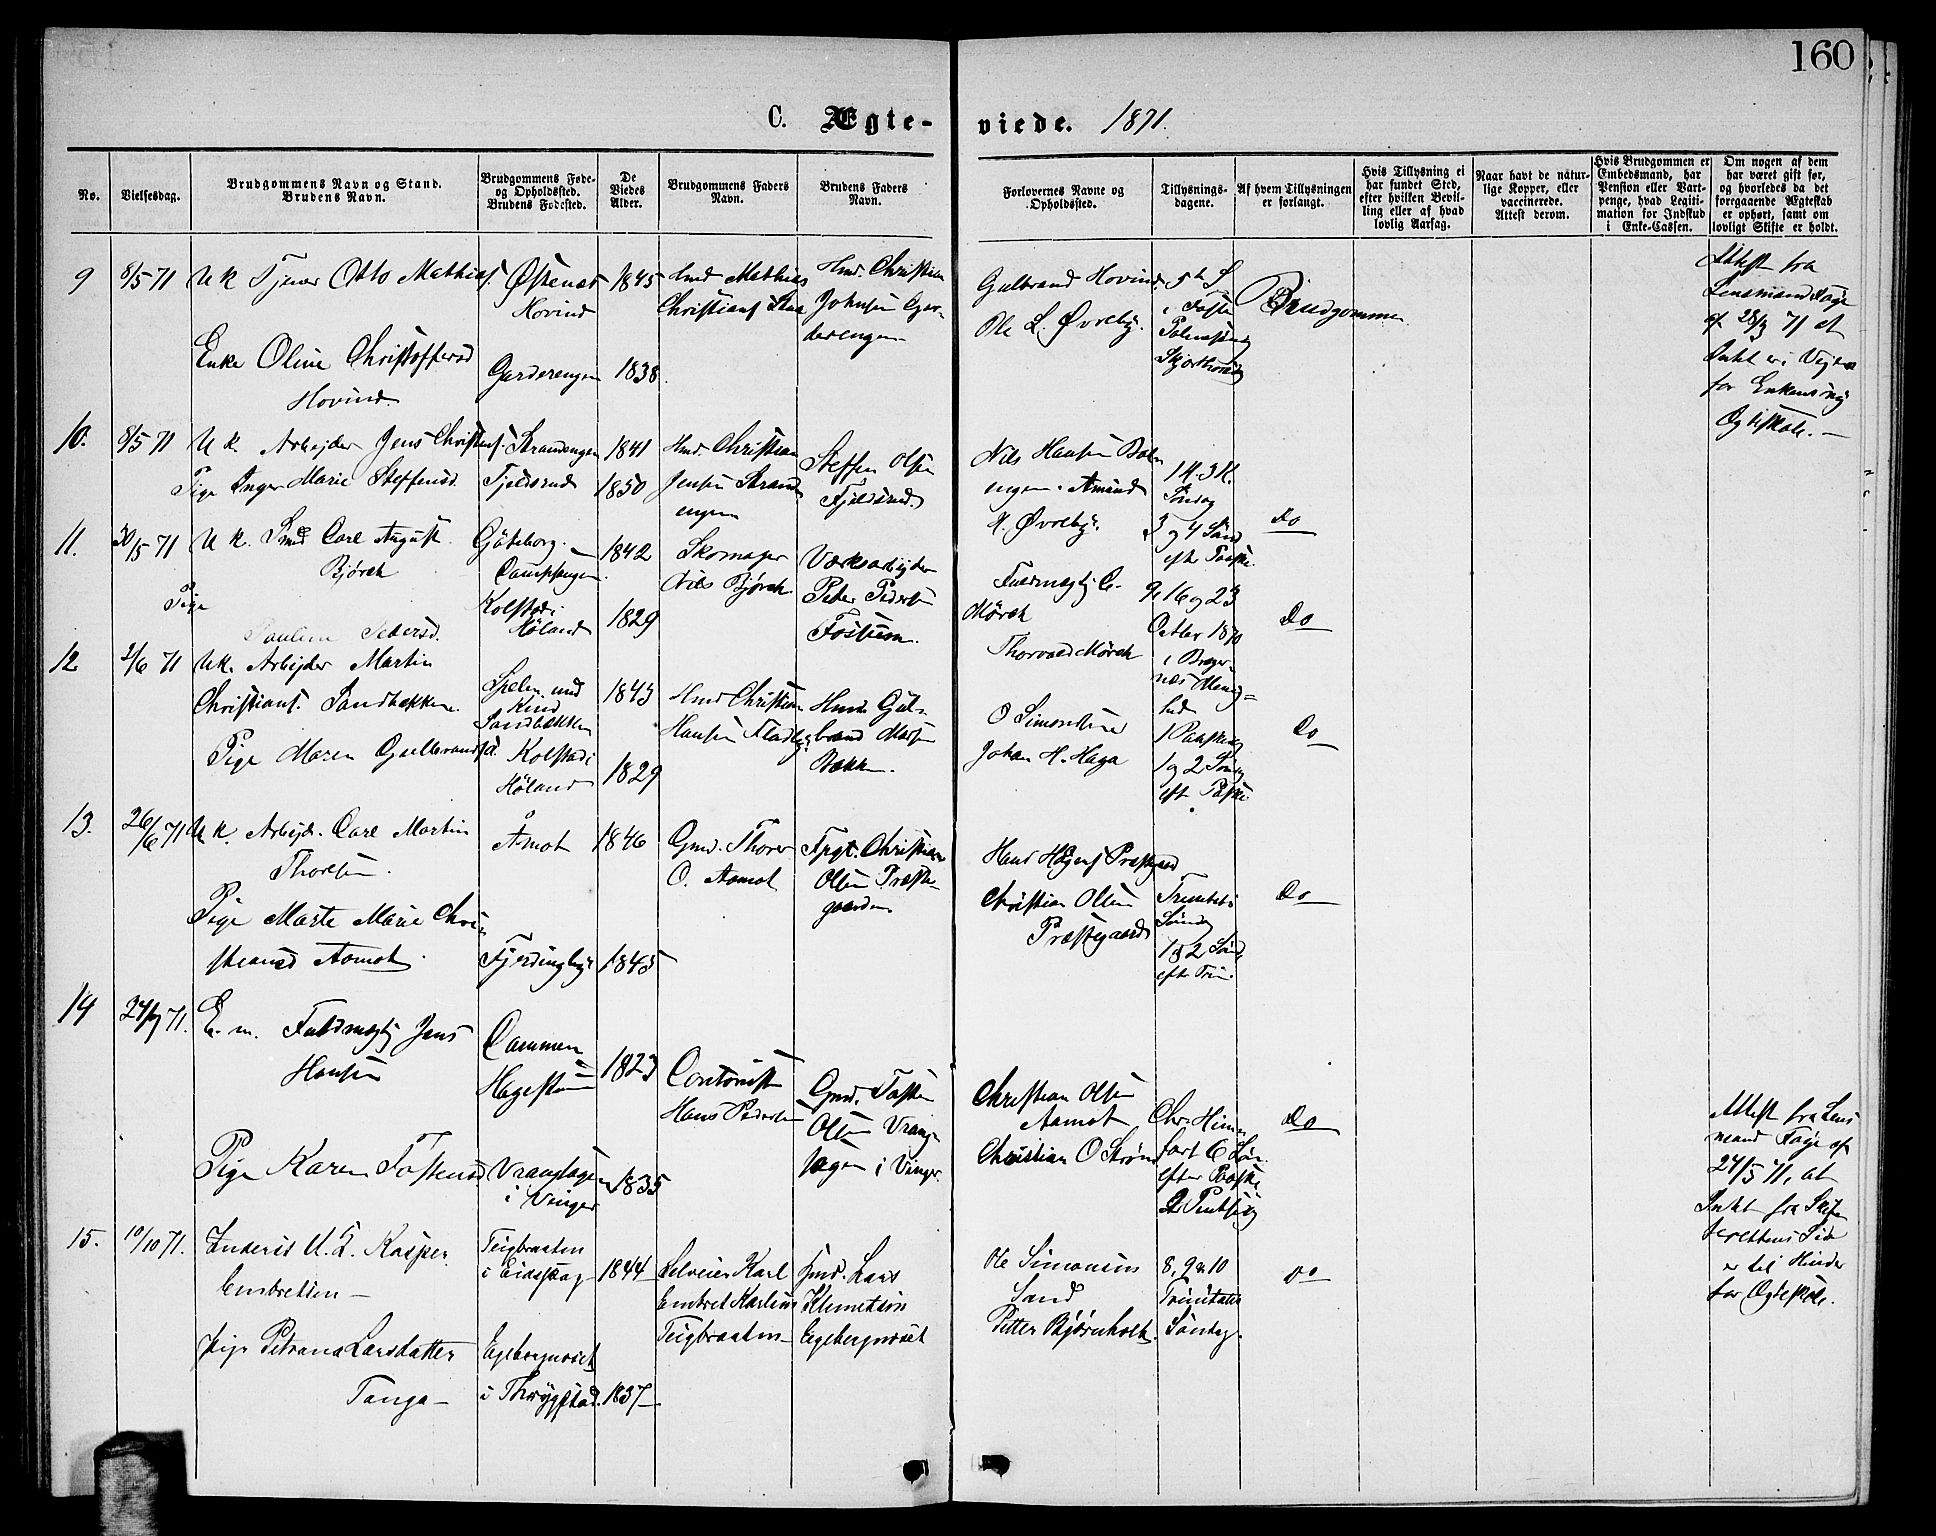 160
C. Ægte-viede. 1871.
No.
Vielsesdag.
Brudgommens Navn og Stand.
Brudens Navn.
Brudgommens Føde-
og Opholdssted.
Brudens Fødested.
De
Viedes
Alder.
Brudgommens Faders
Navn.
Brudens Faders
Navn.
Forlovernes Navne og
Opholdssted.
Tillysnings-
dagene.
Af hvem Tillysningen
er forlangt.
Hvis Tillysning ei
har fundet Sted,
efter hvilken Bevil-
ling eller af hvad
lovlig Aarsag.
Naar havt de natur-
lige Kopper, eller
vaccinerede.
Attest derom.
Hvis Brudgommen er
Embedsmand, har
Pension eller Vart-
penge, hvad Legiti-
mation for Indskud
i Enke-Cassen.
Om nogen af dem
har været gift før,
og hvorledes da det
foregaaende Ægteskab
er ophørt, samt om
lovligt Skifte er holdt.
9
8/5 71
Uk Tjener Otto Mathias.
Enke Oline Christoffersd
Hovind
Østenas
Hovind
Garderengen
1845
1838
Hmd Mathias
Hmd. Christian
Johnsen Gar-
derengen
Gulbrand Hovind
Ole L. Øvreby.
5te S.
i Faste
Brudgommen
Attest fra
Lensmand Fage
af 28/3 71 at
Intet er i Vejen
for Enkens nyt
Ægteskab. —
10.
8/5 71
Uk. Arbejder Jens Christens.
Pige Inger Marie Steffensd.
Strandengen
Fjeldsrud
1841
1850
Hmd. Christian
Jensen Strand
engen
Steffen Olsen
Fjeldsrud.
Nils Hansen
engen. Amund
H. Øvreby.
3 og 4 Sønd
eft Paaske.
Do
11.
30/5 71
Uk. Smed Carl August
Bjørck
Pige
Pauline Pedersd.
Gøteborg. —
Kolstad i
Høland
1842
1829
Skomager
Nils Bjørck
Værksarbejder
Peter Pedersen
Fossum.
Fuldmægtig C.
Mørch
Thorvald Mørch
9, 16 og 23
Octbr 1870
i Brager-
næs Menig-
hed
Do
12
2/6 71
Uk. Arbejder Martin
Christians. Sandbækken.
Pige Maren Gulbrandsd.
Sandbækken
Kolstad i
Høland
1843
1829
Hmd Christian
Hansen
Hmd. Gul-
brand
Bakken.
O Simonsen
Johan H. Haga
1 og 2 Sønd
eft Paaske
Do
13.
26/6 71
Uk. Arbejd. Carl Martin
Thorsen.
Pige Marte Marie Chri-
stiansd Aamot.
Åmot
Fjerdingby
1846
1845
Gmd. Thorer
O. Aamot
Fpgt. Christian
Olsen Præste-
gaarden
Christian Olsen
Præstegaard
Trinitatis
Sønd
1 & 2 Sønd
efter Trin.
Do
14
24/7 71.
E. m. Fuldmægtig Jens
Hansen
Pige Karen Tostensd
Hagestuen
i Vinger
1823
1835
Contorist
Hans Pedersen
Gmd. Tosten
Olsen Vrang-
hagen i Vinger.
Christian Olsen
Aamot
Christian O Strøm
Chr. Him-
fart 6 Søn.
efter Paaske
Do
Attest fra Lens
mand Fage af
24/5 71, at
Intet fra Skifte
rettens Side
er til Hinder
for Ægteskab.
15.
10/10 71.
Inderst U. K. Kasper
Embretsen —
Pige Petrana Larsdatter
Tanga —
Teigbraaten
i Eidsskog
i Thrygstad.
1844
1837
Selveier Karl
Embret Karlsen
Teigbraaten —
Hmd. Lars
Klemetsen
Ole Simonsen
Sand
Petter Bjørnholt.
8, 9 & 10
Trinitatis
Søndag.
do